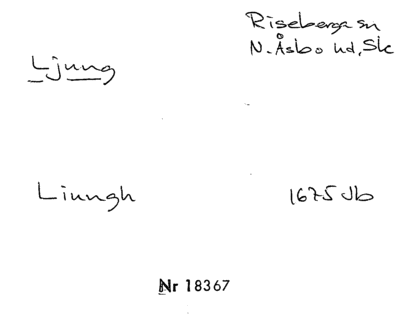 Riseberga sn
N. Åsbo hd, Sk
Ljung
Liungh 1675 Jb
Nr 18367